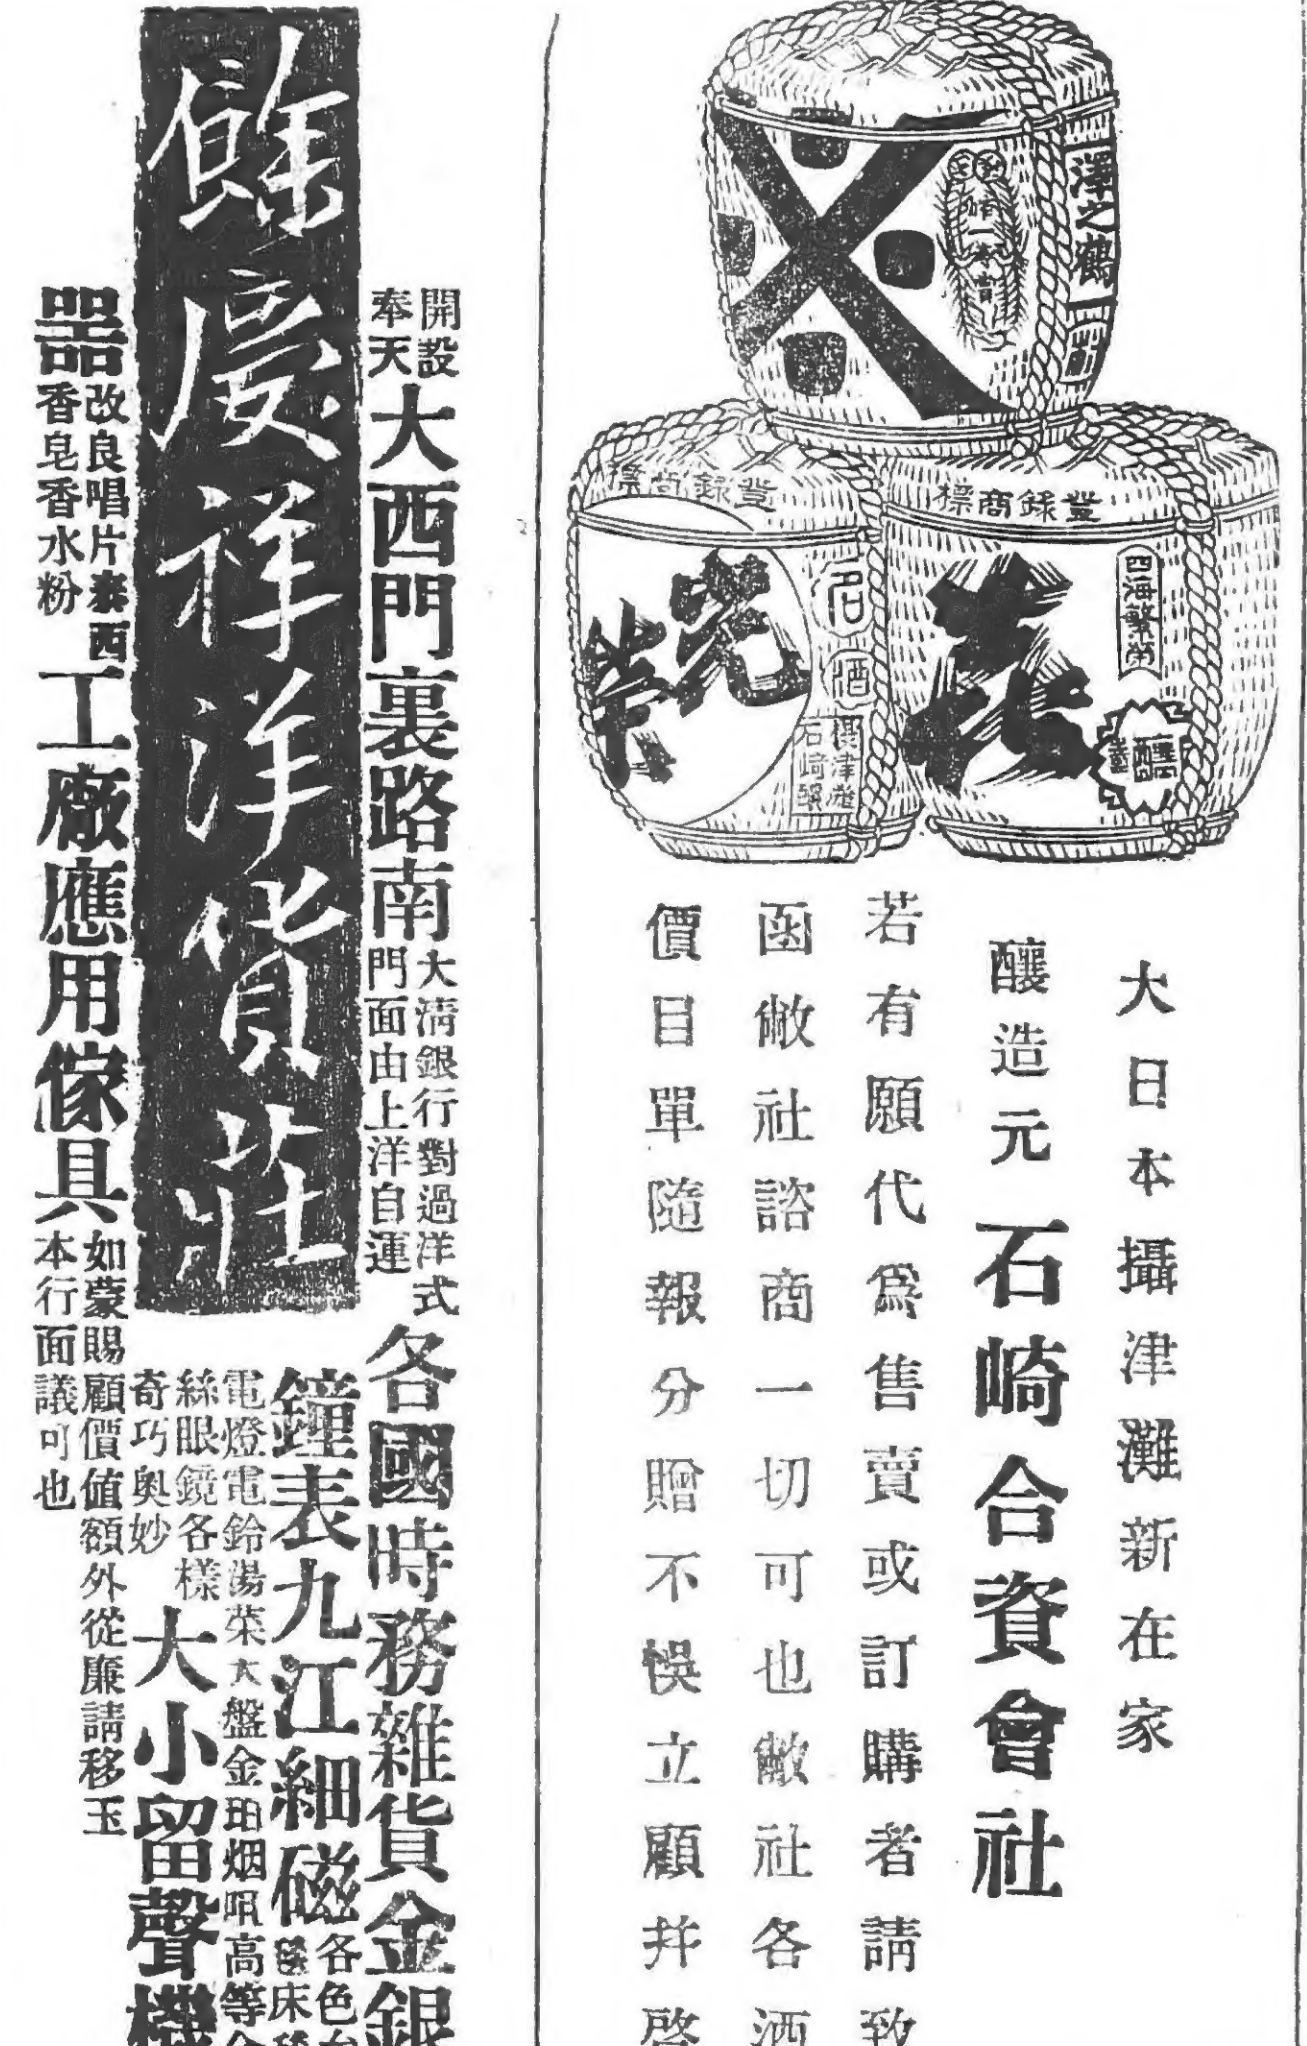 澤之鶴
登錄商標
登錄商標
名酒
石崎釀
四海繁榮
大日本攝津灘新在家
釀造元 石崎合資會社
若有願代爲售賣或訂購者請致
函敝社諮商一切可也敝社各酒
價目單隨報分贈不悞立顧幷啓
開設
奉天
大西門裏路南
大清銀行對過洋式
門面由上洋自運
各國時務雜貨金銀
餘慶祥洋貨莊
鐘表九江細磁
各色
電燈電鈴湯菜大盤金珀烟咀高等
絲眼鏡各樣
奇巧奧妙
大小留聲機
器
改良唱片泰西
香皂香水粉
工廠應用傢具
如蒙賜顧價值額外從廉請移玉
本行面議可也